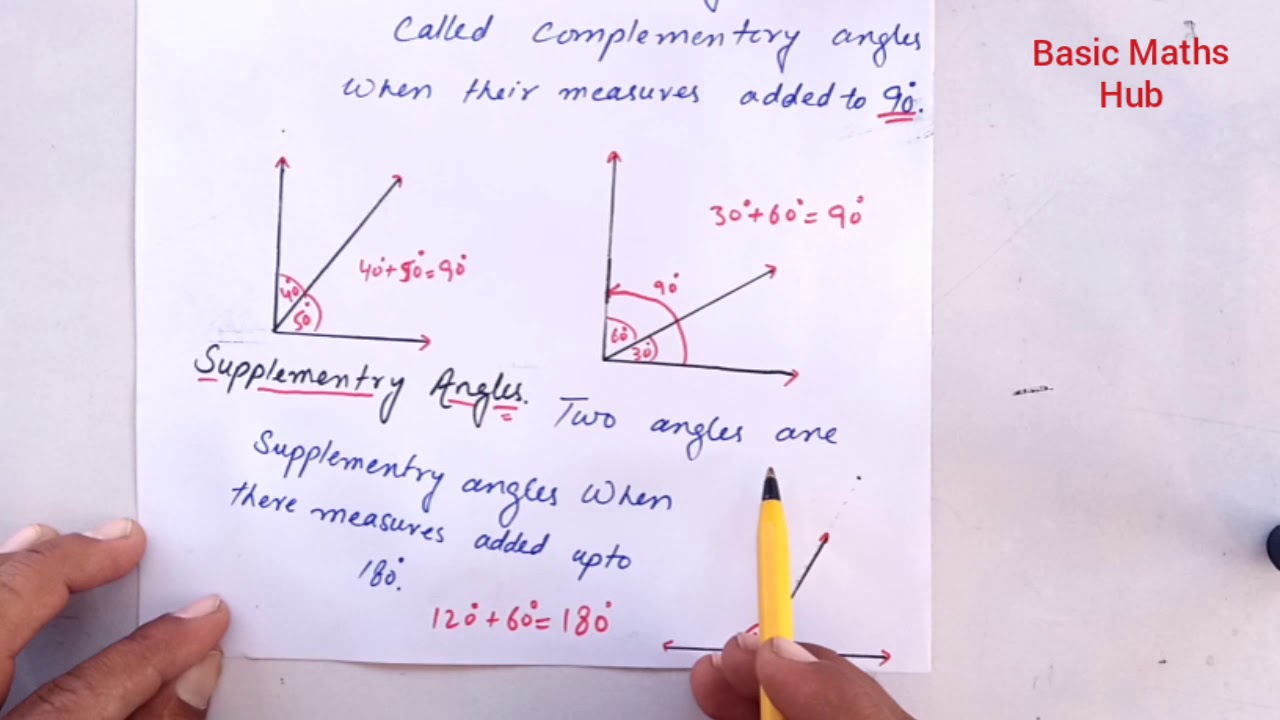 Called complementry angles
when their measures added to 90°.
Basic Maths
Hub
40°+50°=90°
40°
50°
30°+60°=90°
90°
60°
30°
Supplementry Angles. Two angles are
Supplementry angles when
there measures added upto
180°.
120°+60°=180°